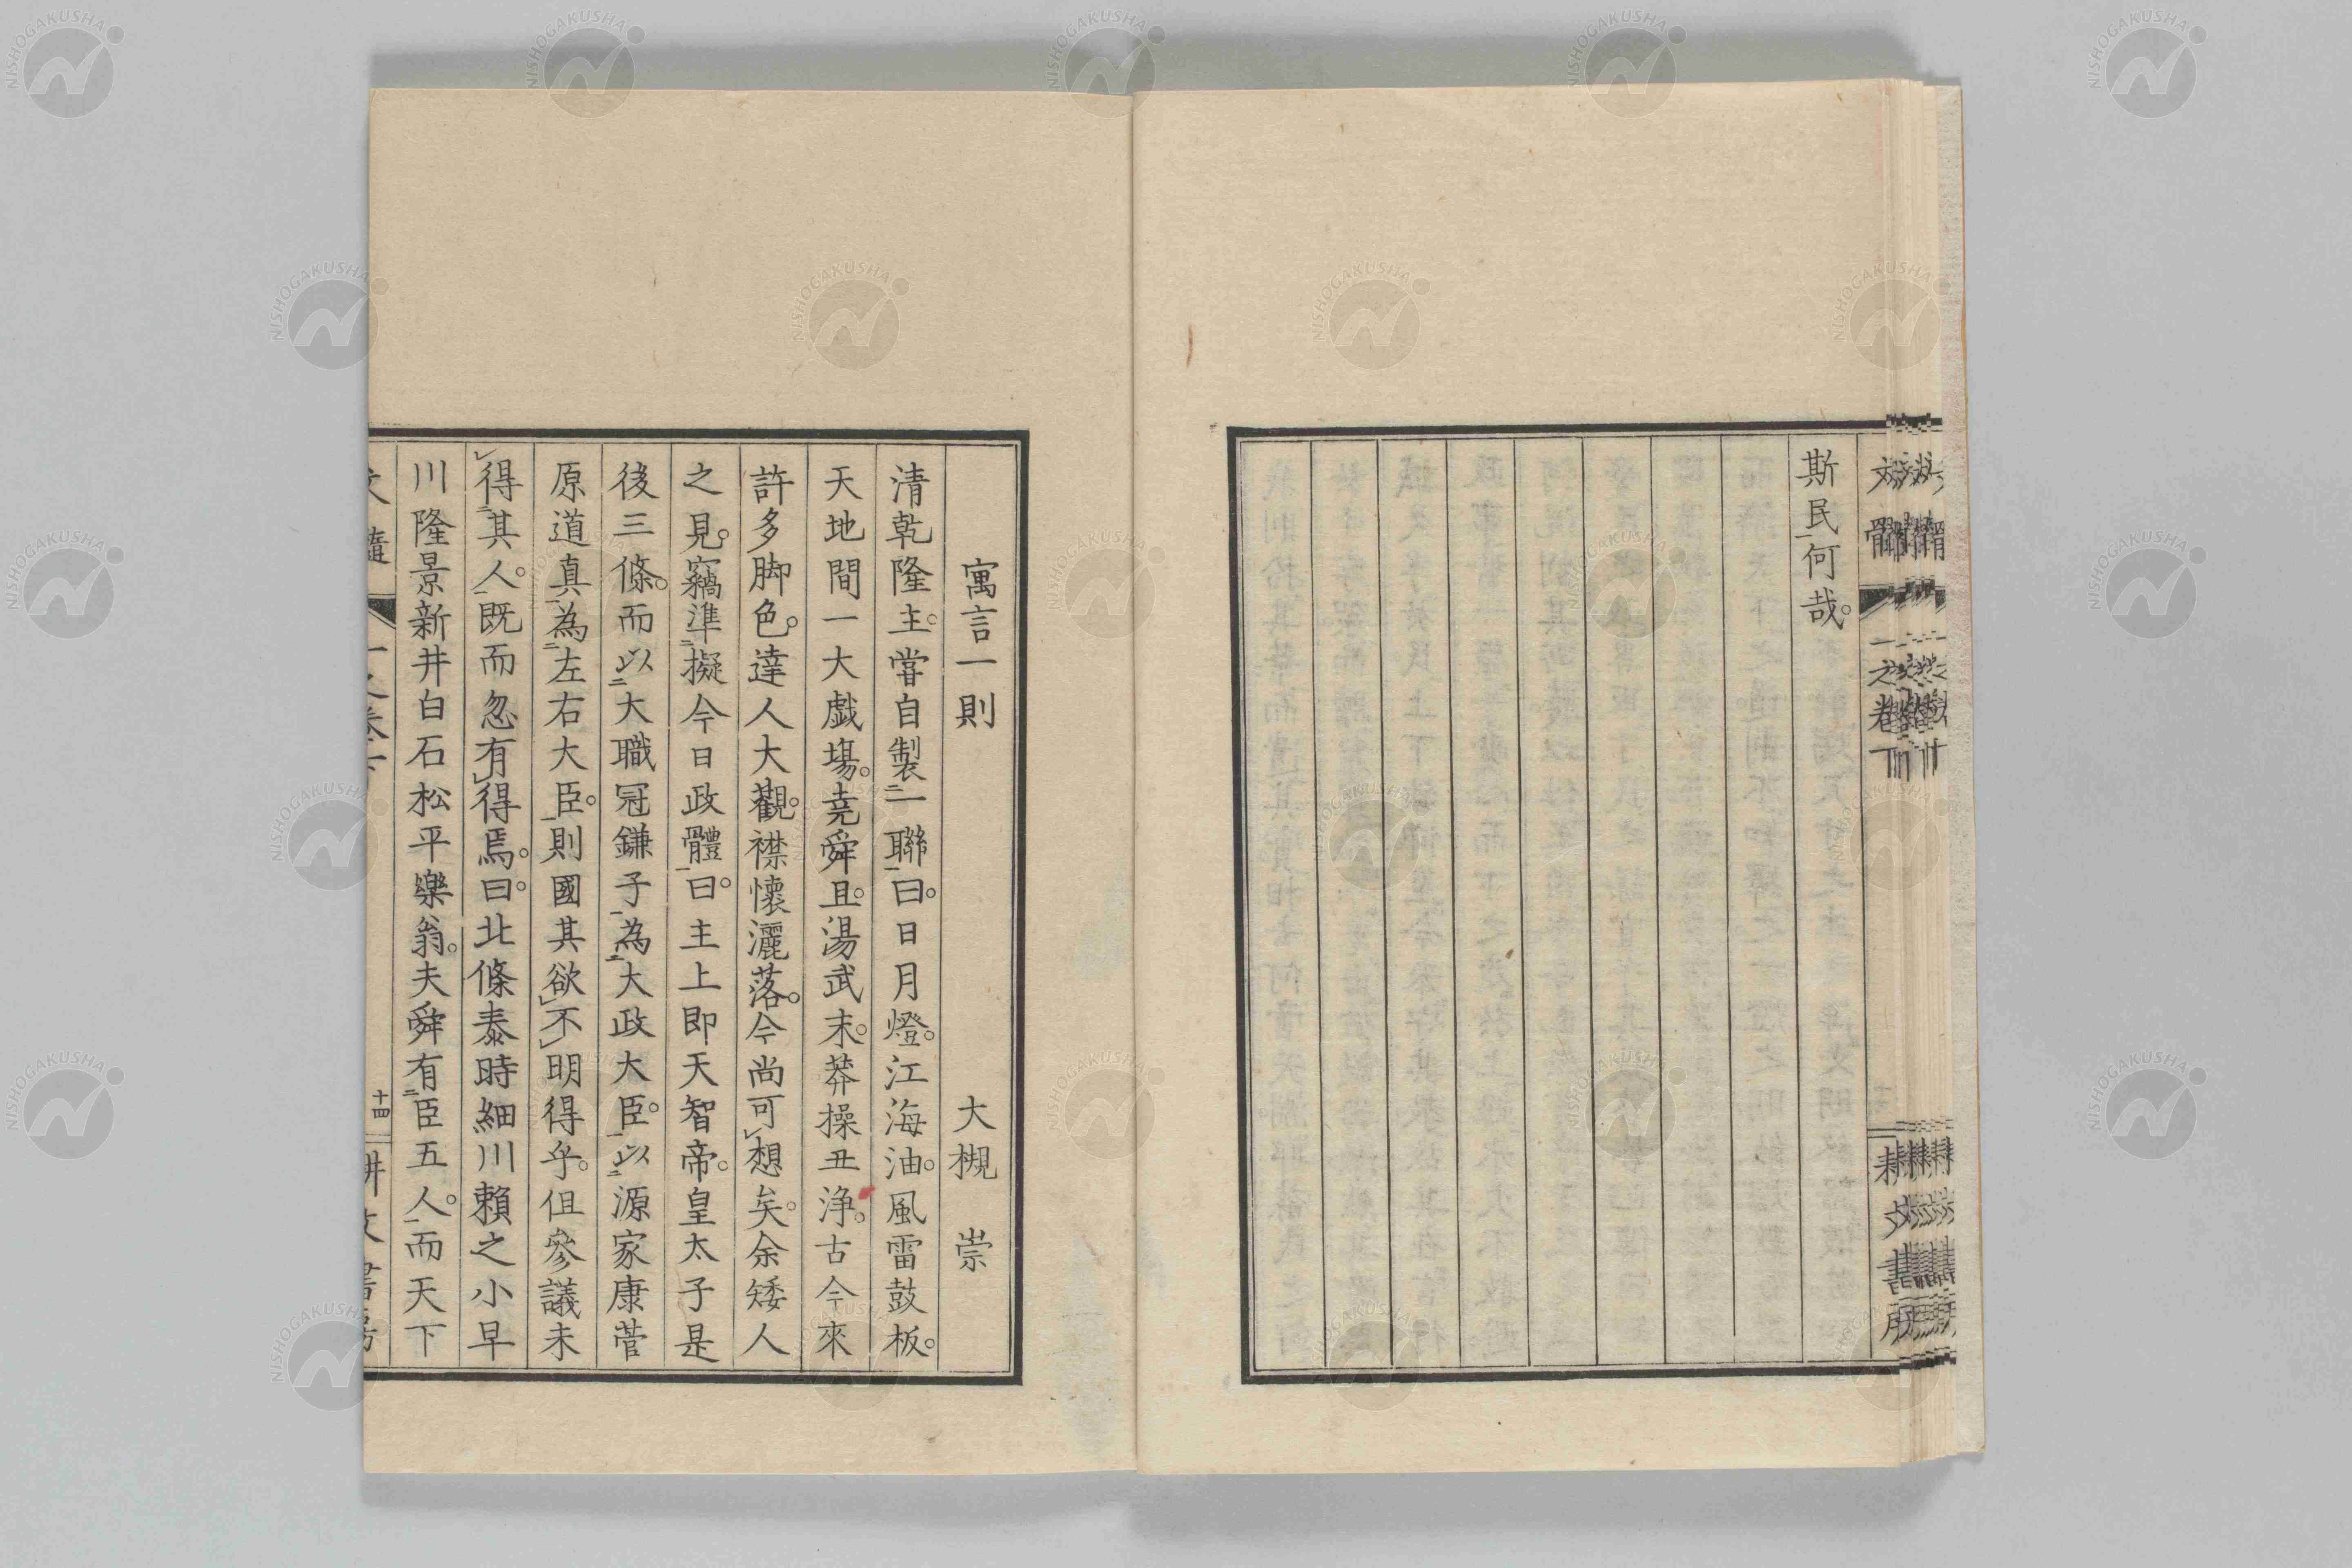 斯民何哉。
寓言一則　大槻　崇
清乾隆主。嘗自製二一聯一曰。日月燈。江海油。風雷鼓板。
天地間一大戲場。堯舜且。湯武末。莽操丑淨。古今來
許多脚色。達人大觀。襟懷灑落。今尚可レ想矣。余矮人
之見。竊準二擬今日政體一曰。主上即天智帝。皇太子是
後三條。而以二大職冠鎌子一為二大政大臣。一以二源家康菅
原道真一為二左右大臣。一則國其欲レ不レ明得乎。但參議未
レ得二其人。一既而忽有レ得焉。曰。北條泰時細川賴之小早
川隆景新井白石松平樂翁。夫舜有二臣五人。一而天下
十四
NISHOGAKUSHA